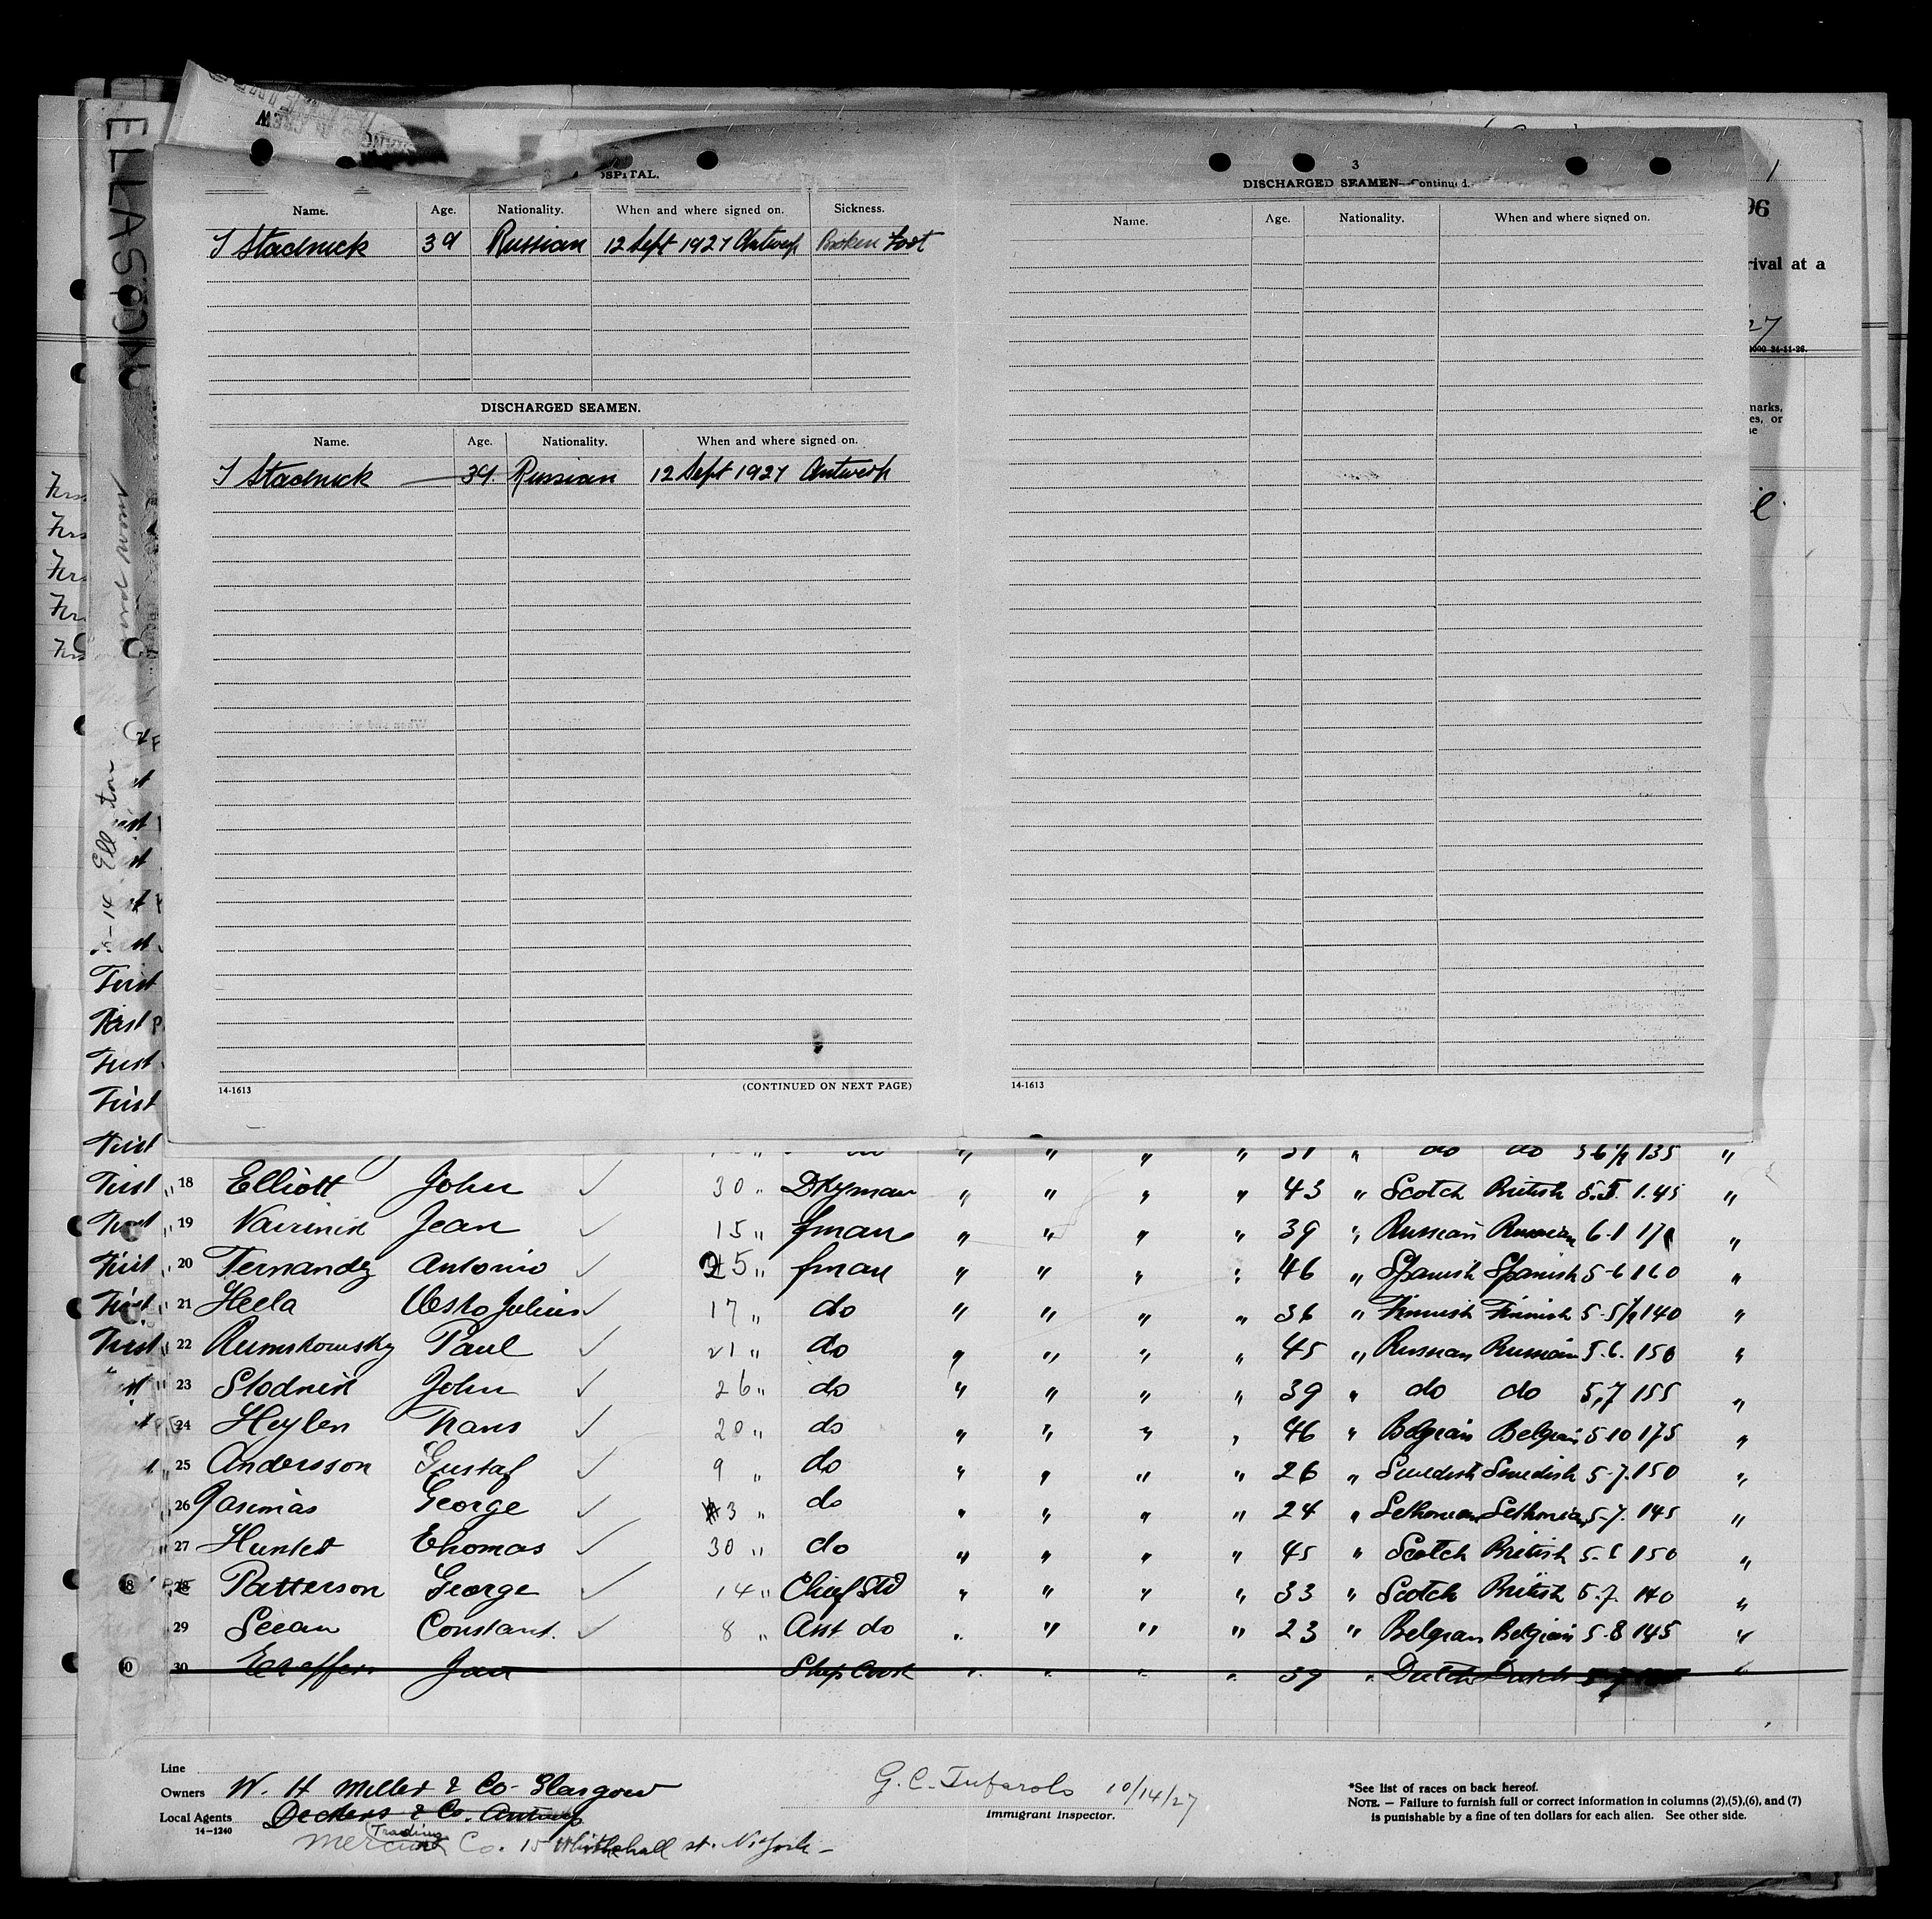 ELLASTON
3
OSPITAL.
Name. Age. Nationality. When and where signed on. Sickness.
J Stadnick 39 Russian 12 Sept 1927 Antwerp Broken Foot
DISCHARGED SEAMEN.
Name. Age. Nationality. When and where signed on.
J Stadnick 39. Russian 12 Sept 1927 Antwerp
14-1613 (CONTINUED ON NEXT PAGE)
3
DISCHARGED SEAMEN—Continued.
Name. Age. Nationality. When and where signed on.
14-1613
96
rival at a
27
narks,
es, or
First
First
First
First
First do do 5 6½ 135 "
First 18 Elliott John ✓ 30 " Dkyman " " " " 43 " Scotch British 5.5. 1.45 "
First 19 Jean ✓ 15 " fman " " " " 39 " Russian Russian 6-1 "
First 20 Fernandez Antonio ✓ 25 " fman " " " " 46 " Spanish Spanish 5-6 160 "
First 21 Heela Julius ✓ 17 " do " " " " 36 " Finnish Finnish 5-5½ 140 "
First 22 Rumskowsky Paul ✓ 21 " do " " " " 45 " Russian Russian 5.6. 150 "
23 Stodnik John ✓ 26 " do " " " " 39 " do do 5,7 155 "
24 Heylen Frans ✓ 20 " do " " " " 46 " Belgian Belgian 5-10 175 "
25 Andersson Gustaf ✓ 9 " do " " " " 26 " Swedish Swedish 5-7. 150 "
26 George ✓ 3 " do " " " " 24 " 5-7. 145 "
27 Hunter Thomas ✓ 30 " do " " " " 45 " Scotch British 5-6 150 "
28 Patterson George ✓ 14 " Chief Std " " " " 33 " Scotch British 5-7. 140 "
29 Constant. ✓ 8 " Asst do " " " " 23 " Belgian Belgian 5-8 145 "
30 Jan Ship Cook " " " " 39 " Dutch Dutch "
Line
Owners W. H Miller & Co- Glasgow
Local Agents Deckers & Co. Antwerp
14-1240
Trading
Co. 15 Whitehall st. N. York -
G. C. Tufarolo 10/14/27
Immigrant Inspector.
*See list of races on back hereof.
NOTE. — Failure to furnish full or correct information in columns (2),(5),(6), and (7)
is punishable by a fine of ten dollars for each alien. See other side.